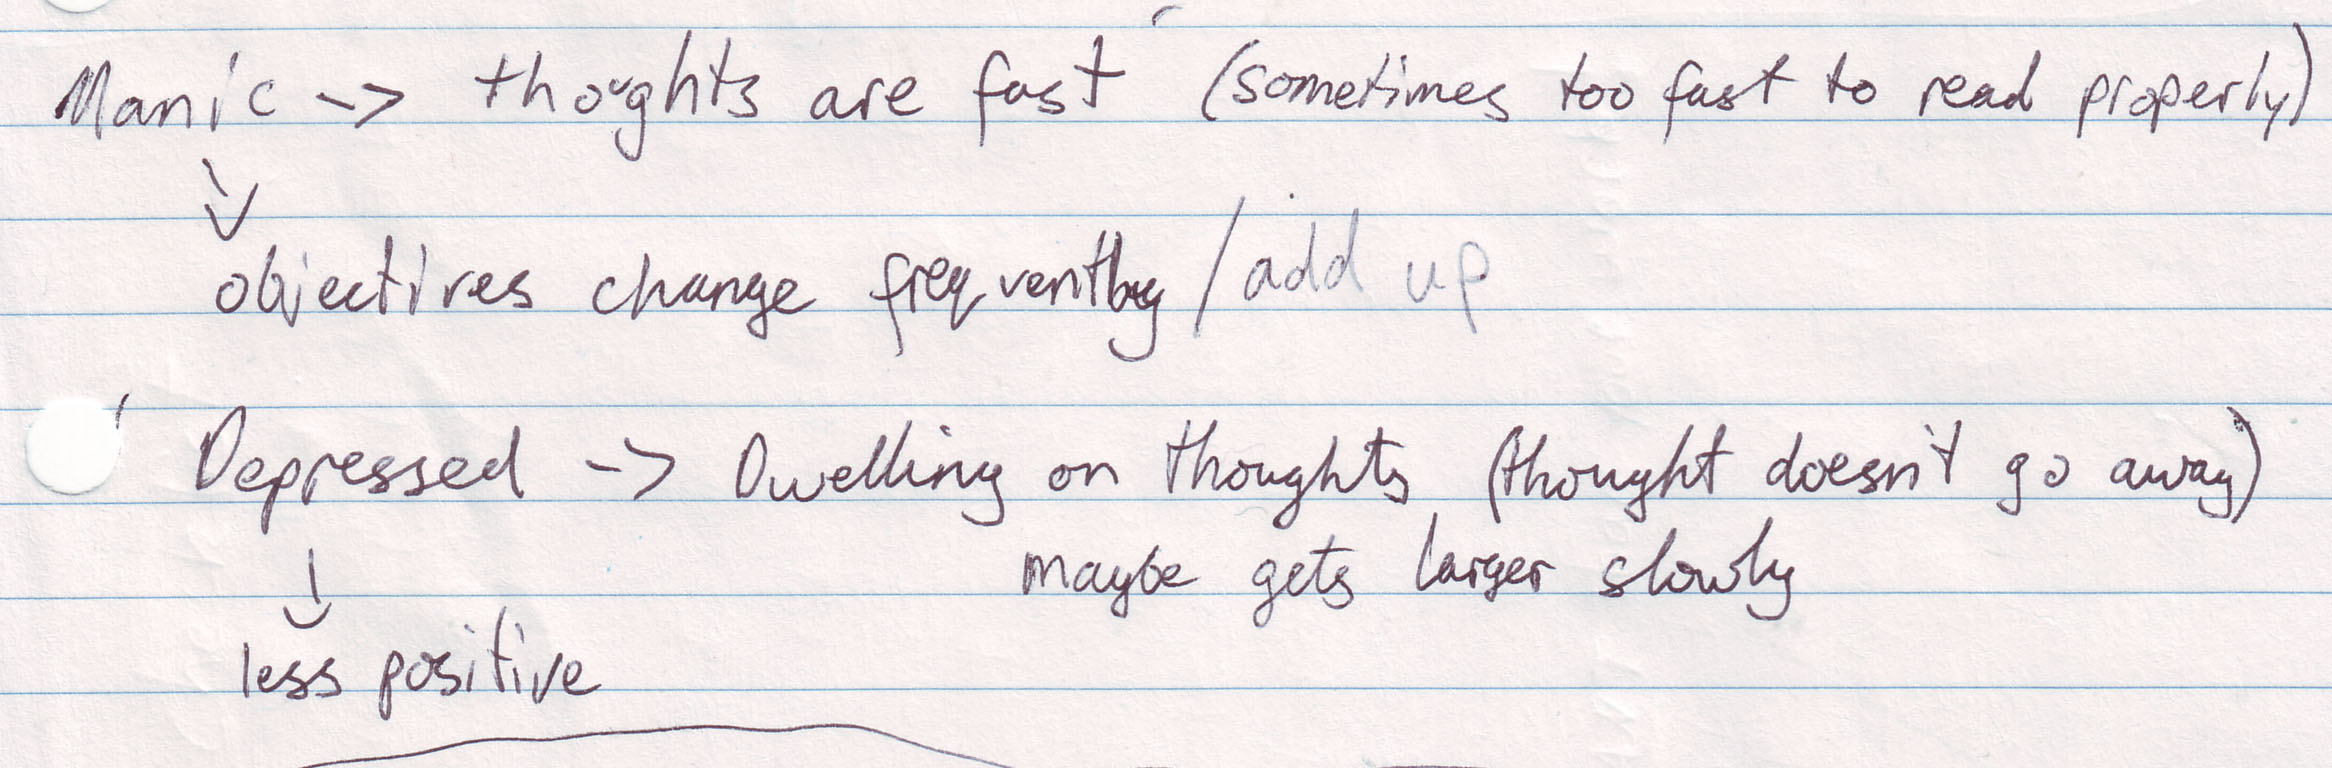 Manic -> thoughts are fast (sometimes too fast to read properly)
↓
objectives change frequently / add up
Depressed -> Dwelling on thoughts (thought doesn't go away)
↓ maybe gets larger slowly
less positive